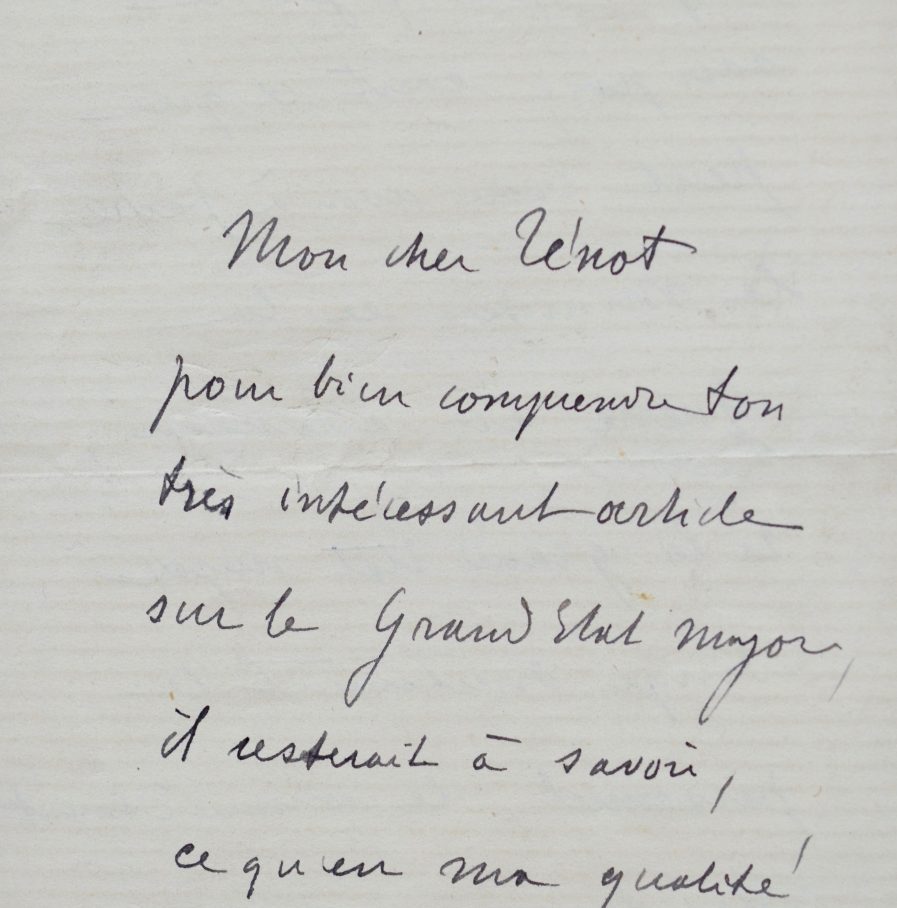 Mon cher Ténot
pour bien comprendre ton
très intéressant article
sur le Grand Etat major,
il resterait à savoir,
ce qu'en ma qualité